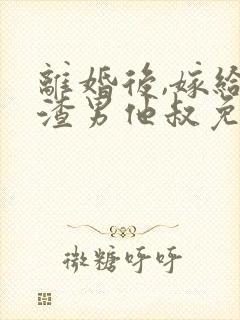 離婚後,嫁給
渣男他叔免
微糖呼呼